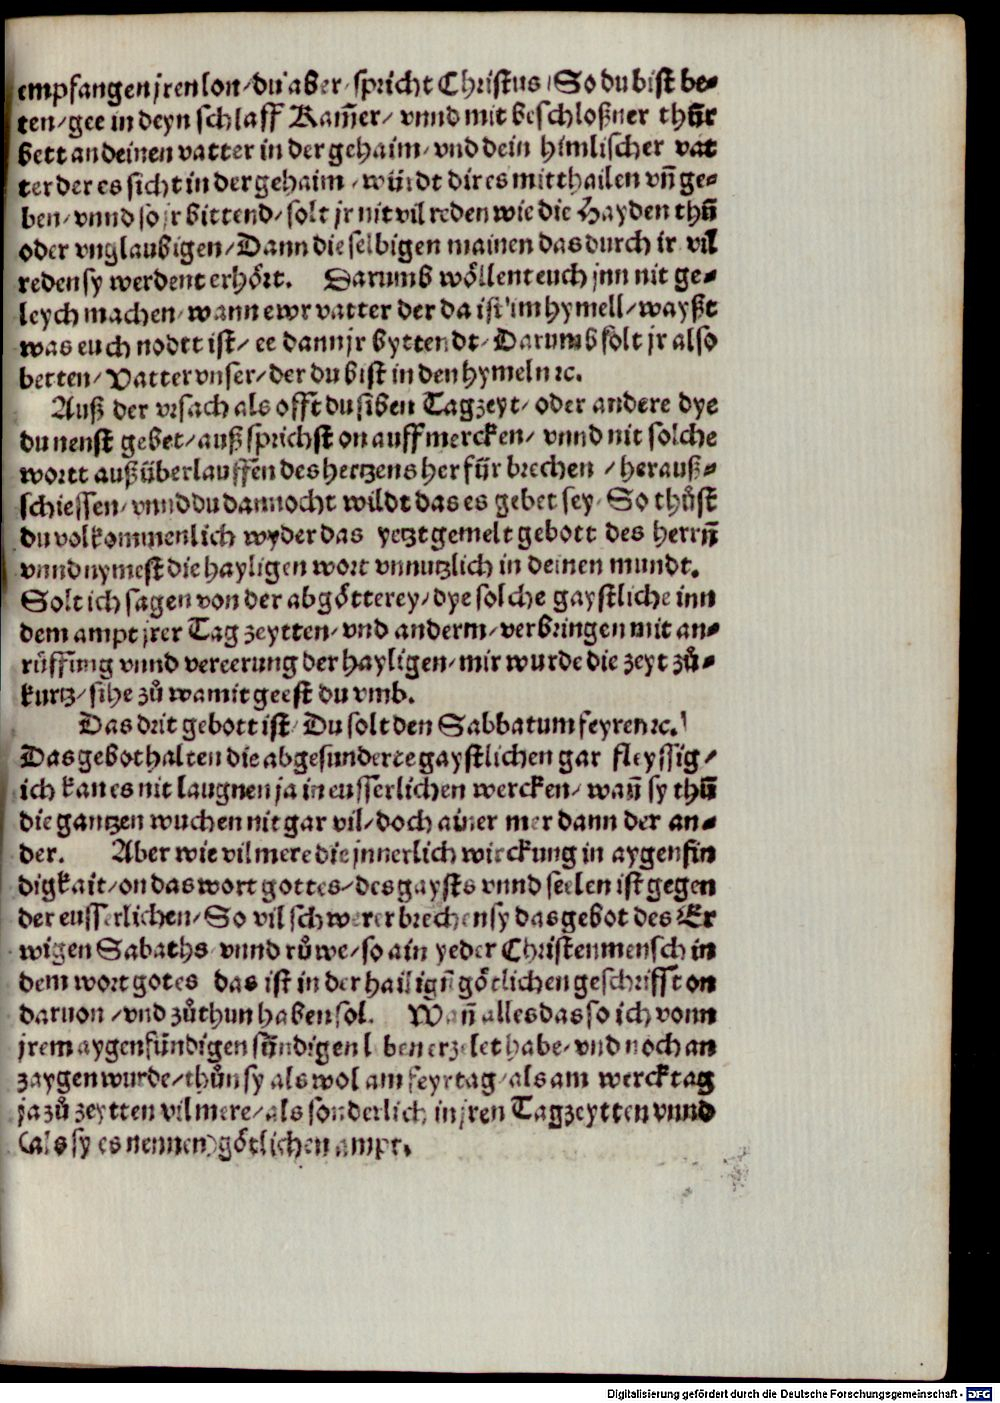 empfangen jren lon/ du aber/ spricht Christus/ So du bist be⸗
ten/ gee in deyn schlaff Kam̄er/ vnnd mit beschloßner thür
bett an deinen vatter in der gehaim/ vnd dein himlischer vat
ter der es sicht in der gehaim/ würdt dir es mitthailen vn̄ ge⸗
ben/ vnnd so jr bittend/ solt jr nit vil reden wie die Hayden thün̄
oder vnglaubigen/ Dann die selbigen mainen das durch ir vil
reden sy werdent erhört. Darumb wöllent euch jnn nit ge⸗
leych machen/ wann ewr vatter der da ist im hymell/ wayßt
was euch nodtt ist/ ee dann jr byttendt/ Darumb solt jr also
betten/ Vatter vnser/ der du bist in den hymeln ꝛc.
Auß der vrsach als offt du siben Tagzeyt/ oder andere dye
du nenst gebet/ auß sprichst on auffmercken/ vnnd nit solche
wortt auß überlauffen des hertzens her für brechen/ herauß⸗
schiessen/ vnnd du dannocht wildt das es gebet sey/ So thůst
du volkommenlich wyder das yetzt gemelt gebott des herrn̄
vnnd nymest die hayligen wort vnnutzlich in deinen mundt.
Solt ich sagen von der abgötterey/ dye solche gaystliche inn
dem ampt jrer Tag zeytten/ vnd anderm/ verbringen mit an⸗
rüffung vnnd vereerung der hayligen/ mir wurde die zeyt zů⸗
kurtz/ sihe zů wa mit geest du vmb.
Das drit gebott ist/ Du solt den Sabbatum feyren ꝛc.
Das gebot halten die abgesunderte gaystlichen gar fleyssig/
ich kan es nit laugnen ja in eusserlichen wercken/ wan̄ sy thün̄
die gantzen wuchen nit gar vil/ doch ainer mer dann der an⸗
der. Aber wie vil mere die jnnerlich wirckung in aygensin
digkait/ on das wort gottes/ des gaysts vnnd seelen ist gegen
der eusserlichen/ So vil schwerer brechen sy das gebot des Er
wigen Sabaths/ vnnd růwe/ so ain yeder Christenmensch in
dem wort gotes das ist in der hailign̄ götlichen geschrifft on
daruon/ vnd zůthun haben sol. Wan̄ alles das so ich vonn
jrem aygensündigen sündigen leben erzelet habe/ vnd noch an
zaygen wurde/ thůn sy als wol am feyrtag/ als am wercktag
ja zů zeytten vil mere/ als sonderlich in jren Tagzeytten vnnd
(als sy es nennen) götlichen ampt.
Digitalisierung gefördert durch die Deutsche Forschungsgemeinschaft - DFG